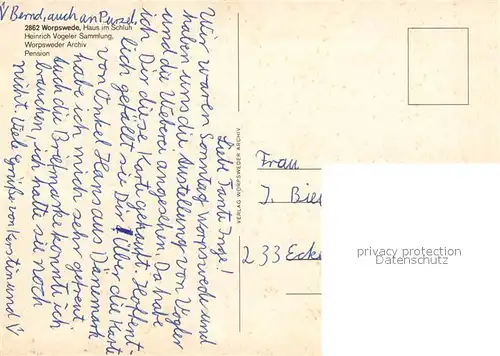 2862 Worpswede, Haus im Schluh
Heinrich Vogeler Sammlung,
Worpsweder Archiv
Pension
Liebe Tante Inge!
Wir waren Sonntag Worpswede und
haben uns die Austellung von Vogler
und die Weberei angesehen. Da habe
ich Dir diese Karte gekauft. Hoffent-
lich gefällt sie Dir! Über die Karte
von Onkel Hans aus Dänemark
habe ich mich sehr gefreut.
Auch die Briefmarke konnte ich
brauchen, ich hatte sie noch
nicht. Viele Grüße von Kerstin und V
V Bernd, auch an Purzel.
VERLAG WORPSWEDER ARCHIV
Frau
I. Bie
233 Ecke
privacy protection
Datenschutz